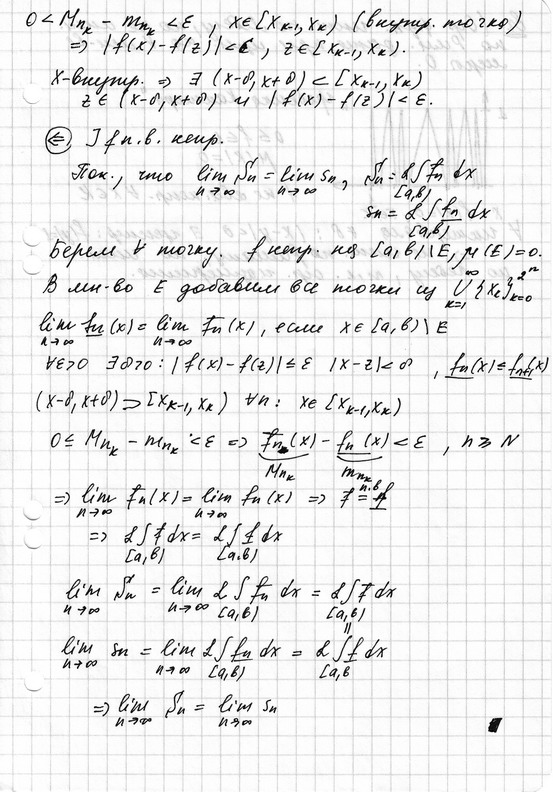 0 < M_{n_k} - m_{n_k} < ε, x ∈ [x_{k-1}, x_k) (внутр. точка)
⇒ |f(x) - f(z)| < ε, z ∈ [x_{k-1}, x_k).
x-внутр. ⇒ ∃ (x-δ, x+δ) ⊂ [x_{k-1}, x_k)
z ∈ (x-δ, x+δ) и |f(x) - f(z)| < ε.
(⇐) ] f п.в. непр.
Пок., что lim_{n→∞} S_n = lim_{n→∞} s_n, S_n = L∫_{[a,b)} \overline{f_n} dx
s_n = L∫_{[a,b)} \underline{f_n} dx
Берем ∀ точку. f непр. на [a,b) \ E, μ(E) = 0.
В мн-во E добавим все точки из ⋃_{k=1}^{∞} {x_k}_{k=0}^{2^n}
lim_{n→∞} \underline{f_n}(x) = lim_{n→∞} \overline{f_n}(x), если x ∈ [a,b) \ E
∀ε>0 ∃δ>0: |f(x) - f(z)| ≤ ε |x-z| < δ, \underline{f_n}(x) ≤ \underline{f_{n+1}}(x)
(x-δ, x+δ) ⊃ [x_{k-1}, x_k) ∀n: x ∈ [x_{k-1}, x_k)
0 ≤ M_{n_k} - m_{n_k} < ε ⇒ \overline{f_n}(x) - \underline{f_n}(x) < ε, n ≥ N
M_{n_k} m_{n_k}
⇒ lim_{n→∞} \overline{f_n}(x) = lim_{n→∞} \underline{f_n}(x) ⇒ \overline{f} =^{п.в} \underline{f}
⇒ L∫_{[a,b)} \overline{f} dx = L∫_{[a,b)} \underline{f} dx
lim_{n→∞} S_n = lim_{n→∞} L∫_{[a,b)} \overline{f_n} dx = L∫_{[a,b)} \overline{f} dx
||
lim_{n→∞} s_n = lim_{n→∞} L∫_{[a,b)} \underline{f_n} dx = L∫_{[a,b} \underline{f} dx
⇒ lim_{n→∞} S_n = lim_{n→∞} s_n